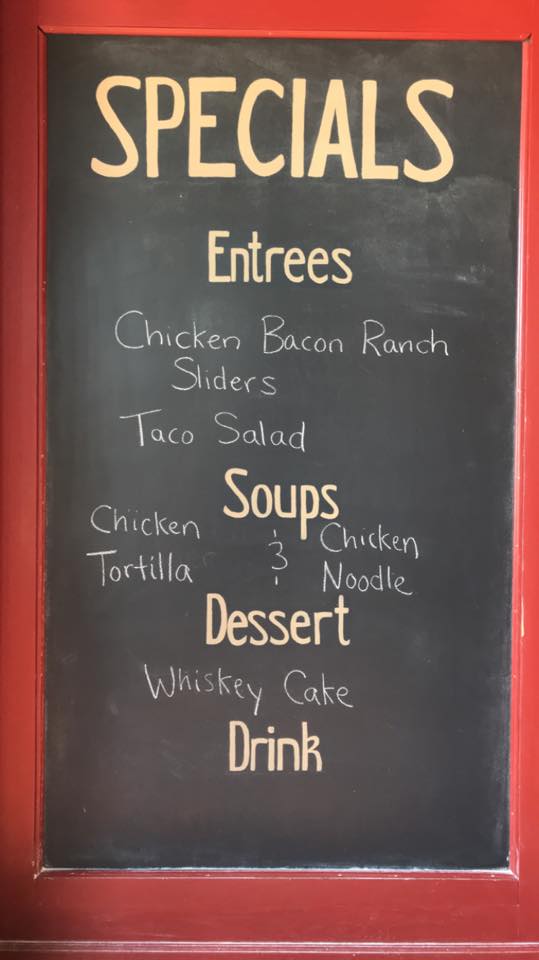 SPECIALS
Entrees
Chicken Bacon Ranch
Sliders
Taco Salad
Soups
Chicken
Tortilla
&
Chicken
Noodle
Dessert
Whiskey Cake
Drink